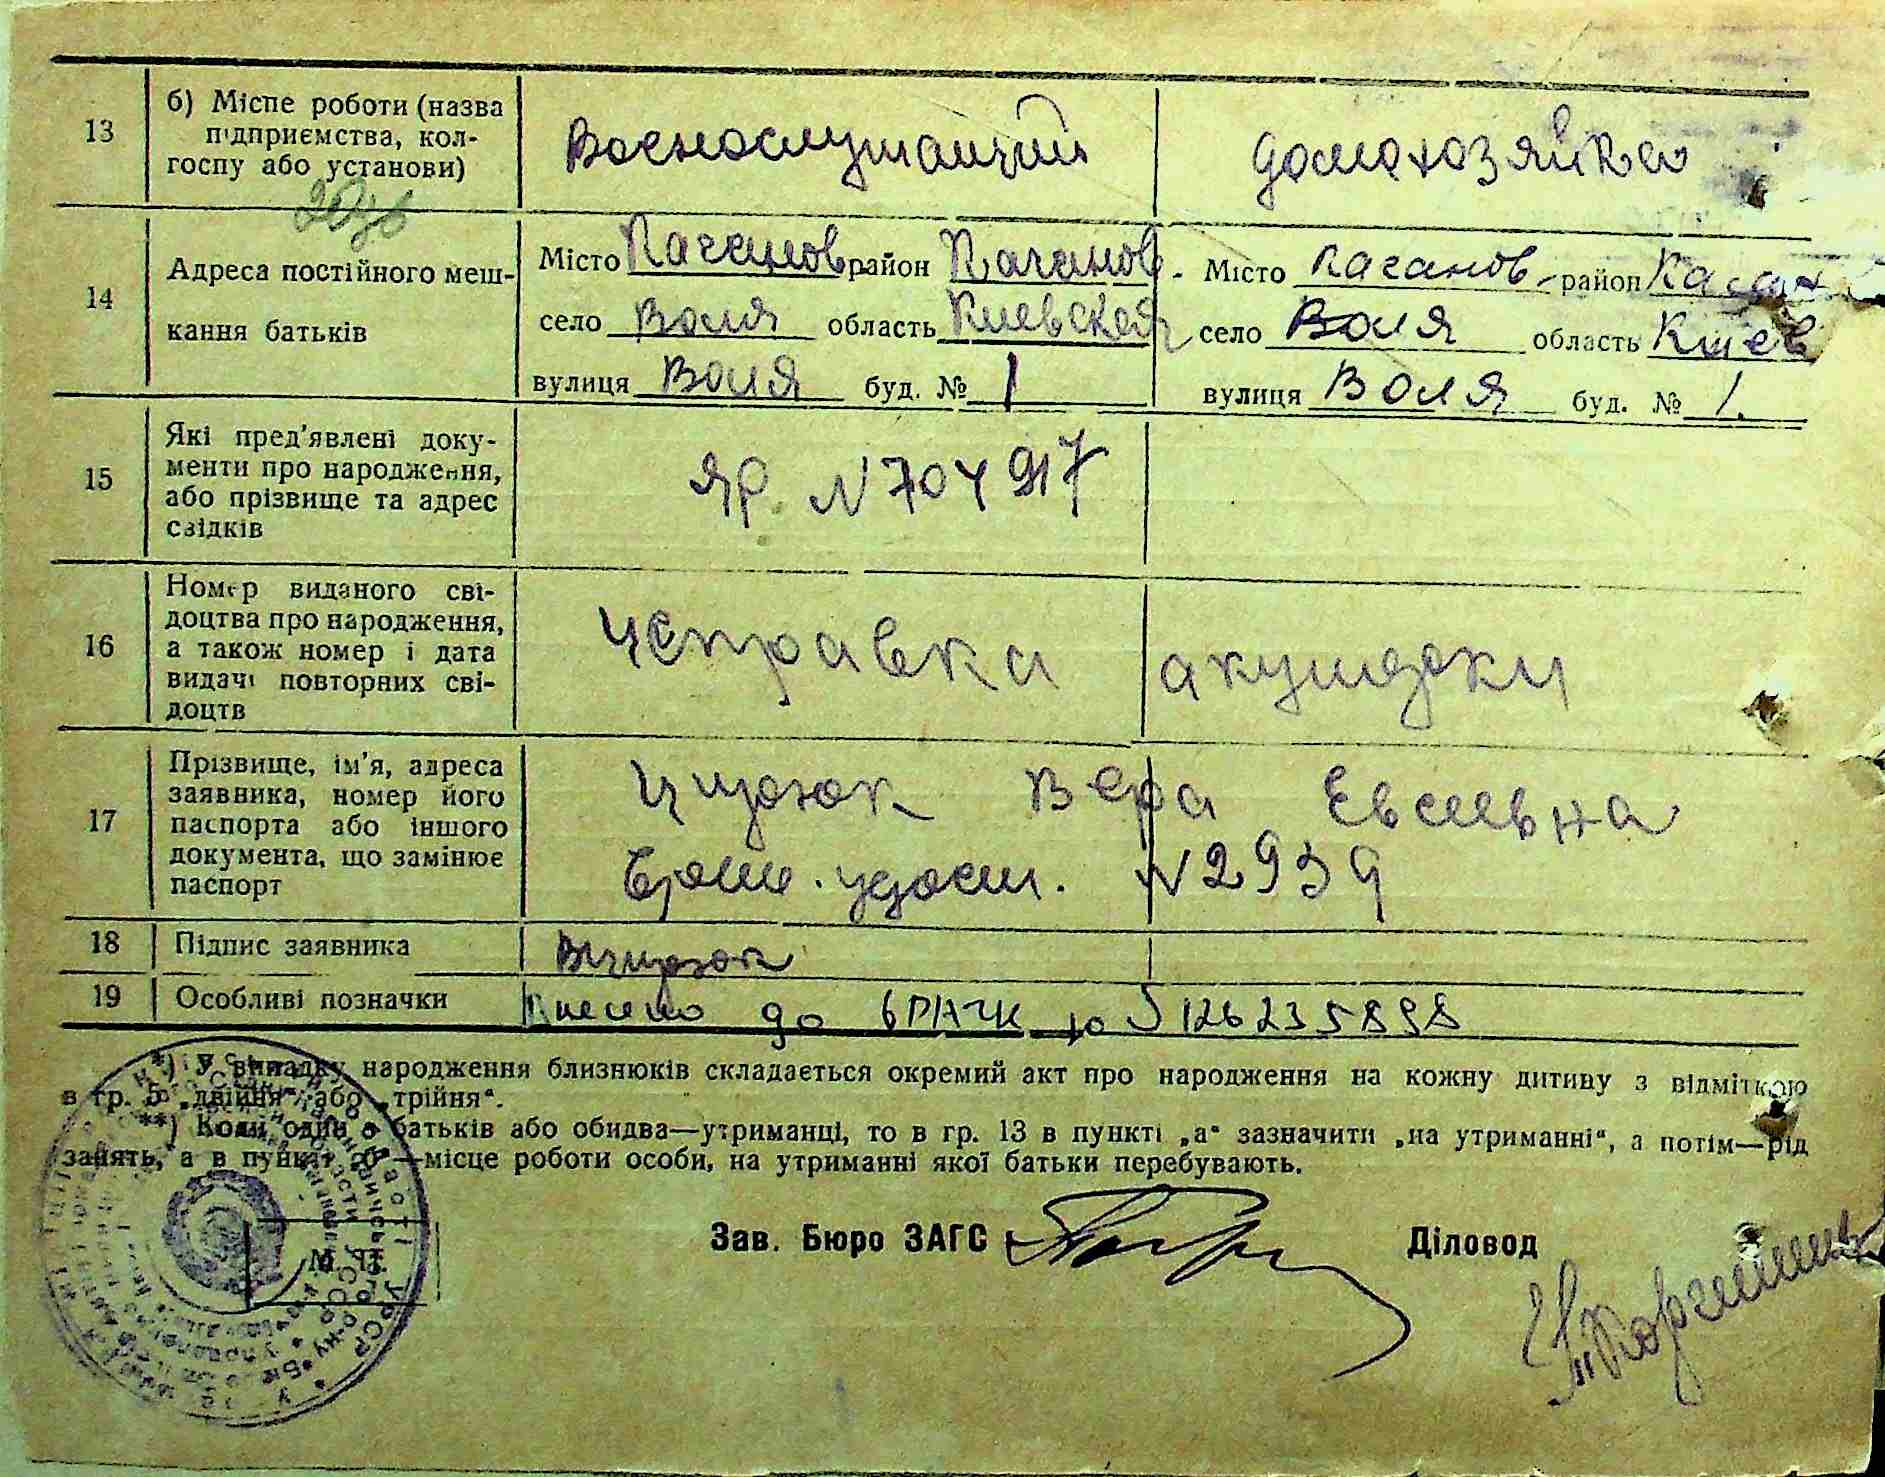 13 б) Місце роботи (назва підприємства, колгоспу або установи) Военослужащий домохозяйка
14 Адреса постійного мешкання батьків
Місто Каганов район Каганов. Місто Каганов район Каган
село Воля область Киевская село Воля область Киев
вулиця Воля буд. № 1 вулиця Воля буд. № 1.
15 Які пред'явлені документи про народження, або прізвище та адрес свідків ЯР. N 704917
16 Номер виданого свідоцтва про народження, а також номер і дата видачі повторних свідоцтв справка акушерки
17 Прізвище, ім'я, адреса заявника, номер його паспорта або іншого документа, що замінює паспорт Вера Евсеевна
N 2939
18 Підпис заявника
19 Особливі позначки Внесено до
*) У випадку народження близнюків складається окремий акт про народження на кожну дитину з відміткою
в гр. 5 „двійня“ або „трійня“.
**) Коли один з батьків або обидва—утриманці, то в гр. 13 в пункті „а“ зазначити „на утриманні“, а потім—рід
занять, а в пункті „б“—місце роботи особи, на утриманні якої батьки перебувають.
Зав. Бюро ЗАГС Діловод
М. П.